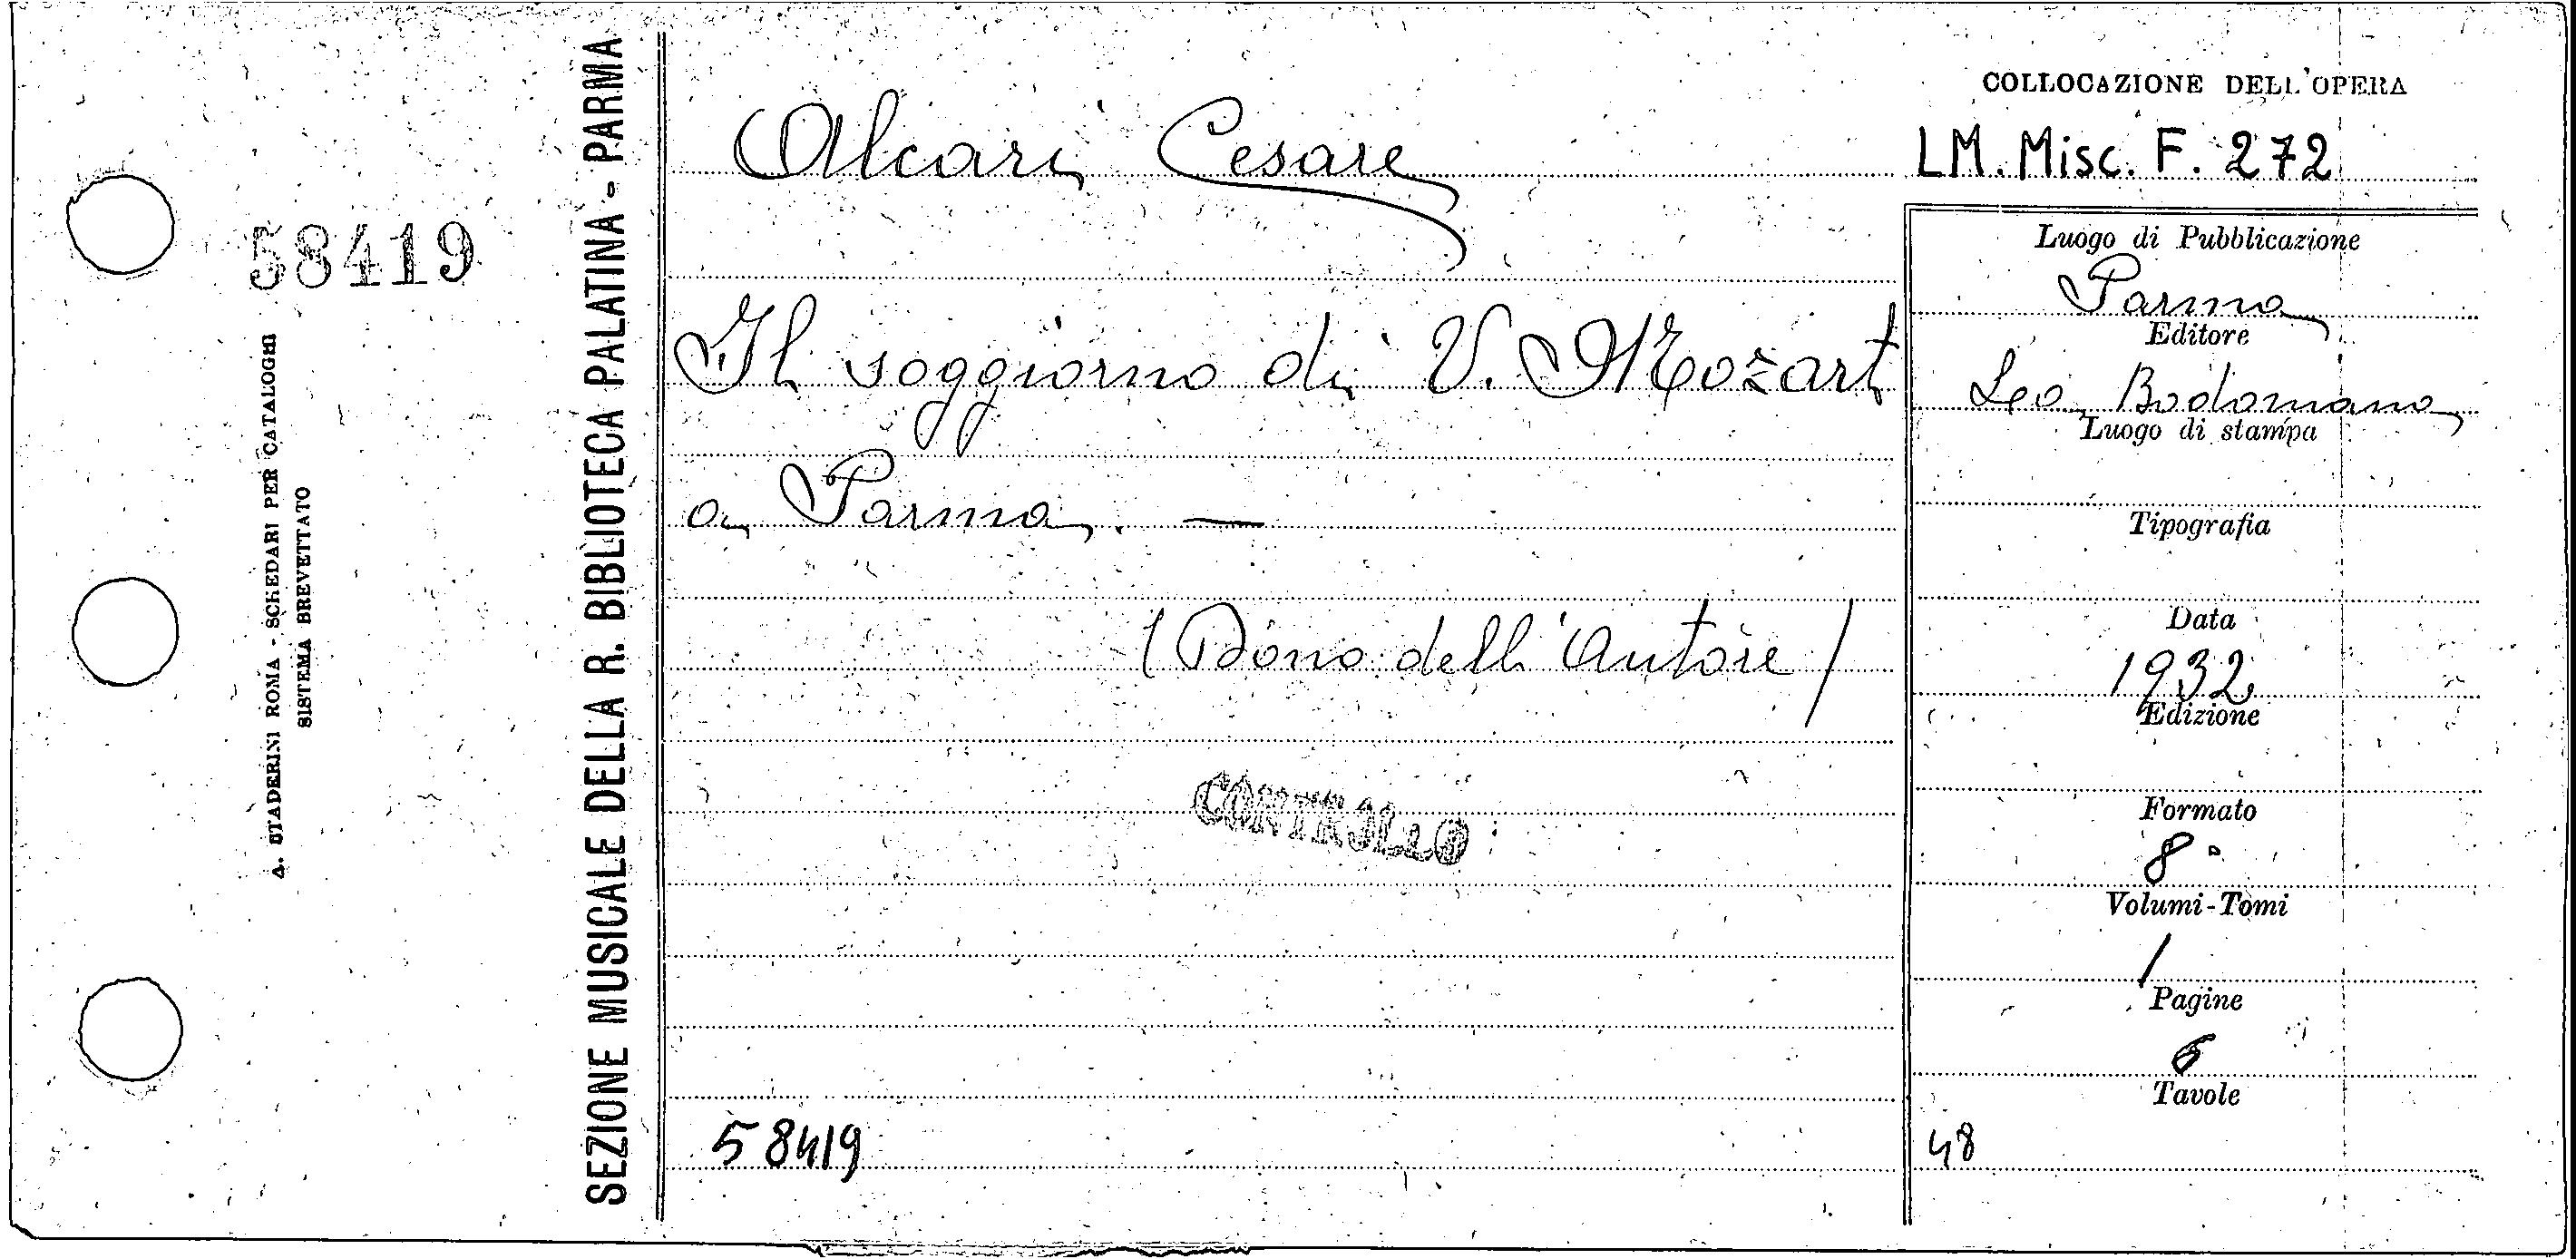 58419
A. STADERINI ROMA - SCHEDARI PER CATALOGHI
SISTEMA BREVETTATO
SEZIONE MUSICALE DELLA R. BIBLIOTECA PALATINA - PARMA
Alcari Cesare
Il soggiorno di V. Mozart
a Parma. —
(Dono dell'Autore)
CONTROLLO
58419
COLLOCAZIONE DELL'OPERA
LM. Misc. F. 272
Luogo di Pubblicazione
Parma
Editore
Leo Bodoniana
Luogo di stampa
Tipografia
Data
1932
Edizione
Formato
8°
Volumi-Tomi
1
Pagine
6
Tavole
48